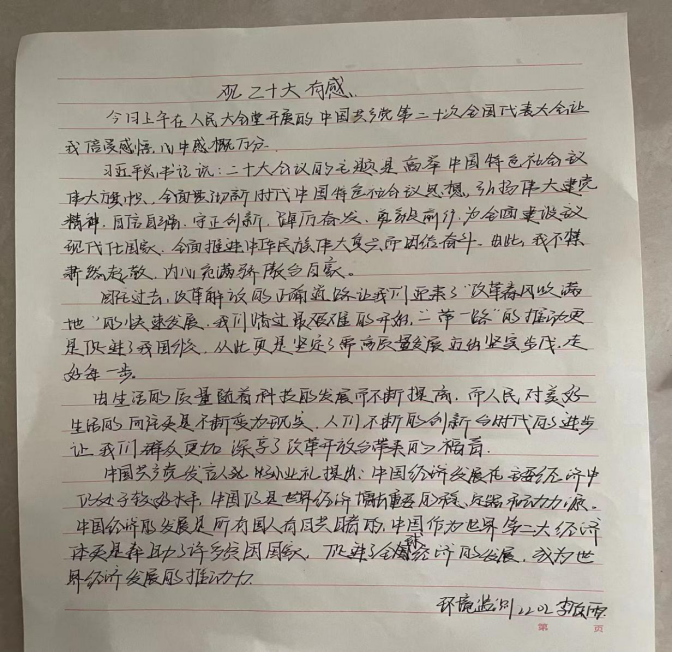 观二十大有感
今日上午在人民大会堂开展的中国共产党第二十次全国代表大会让
我倍受感悟，心中感慨万分
习近平总书记说：二十大会议的主题是高举中国特色社会议
伟大旗帜，全面贯彻新时代中国特色社会议思想，弘扬伟大建党
精神，自信自强，守正创新，踔厉奋发，勇毅前行，为全面建设议
现代化国家，全面推进中华民族伟大复兴而团结奋斗。由此，我不禁
肃然起敬，内心充满骄傲自豪。
回往过去，改革解放的正确道路让我们迎来了“改革春风吹满
地”的快速发展，我们度过最艰难的开始，“一带一路”的推动更
是促进了我国，从此更是坚定了高质量发展坚实步伐，走
好每一步。
由生活的质量随着科技的发展而不断提高，而人民对美好
生活的向往更是不断变为现实，人们不断的创新台时代的进步
让我们群众更加深享了改革开放台带来的福音．
中国共产党发言人孙业礼提出：中国经济发展在主要经济中
仍处于较好水平，中国仍是世界经济增长重要的引擎和动力源。
中国经济的发展是所有国人有目共睹的，中国作为世界第二大经济
体更是帮助了许多贫困国家，促进了全球经济的发展，成为世
界经济发展的推动力
环境监测2202 李
第 页